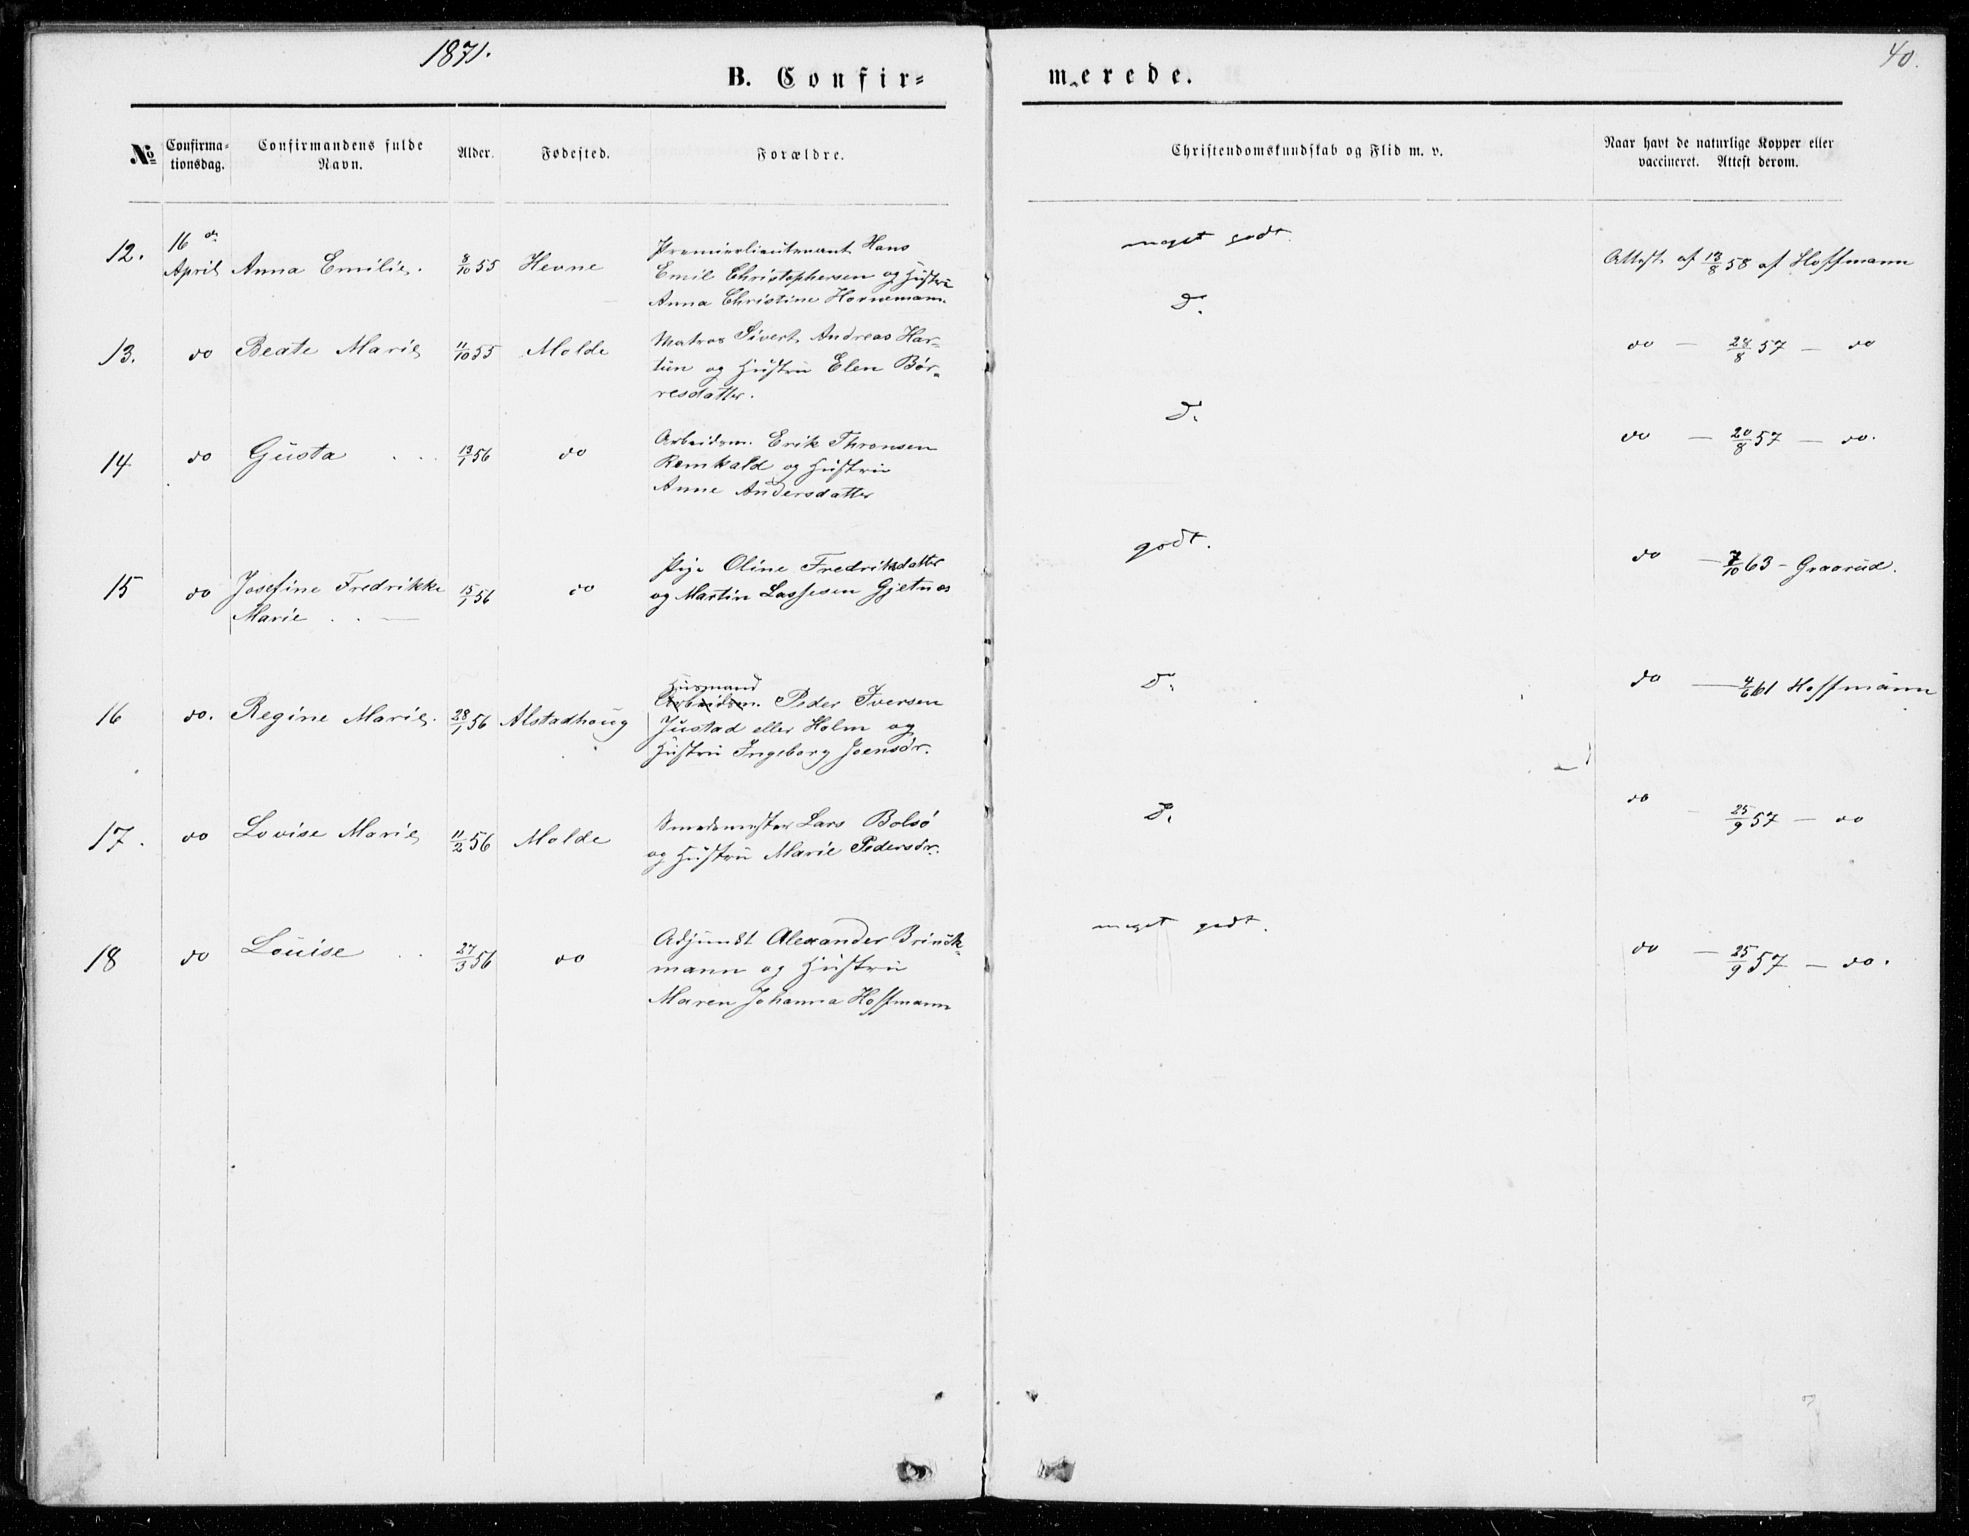 1871.
40.
B. Confir-
merede.
No
Confirma-
tionsdag.
Confirmandens fulde
Navn.
Alder.
Fødested.
Forældre.
Christendomskundskab og Flid m. v.
Naar havt de naturlige Kopper eller
vaccineret. Attest derom.
12.
16 de
April
Anna Emilie.
8/10 55
Hevne
Premierlieutenant Hans
Emil Christophersen og Hustru
Anna Christine Hornemann.
meget godt.
Attest af 18/8 58 af Hoffmann
13.
do
Beate Marie
11/10 55
Molde
Matros Sivert Andreas Har-
tun og Hustru Elen Bør-
resdatter.
D.
do — 28/8 57 — do
14
do
Gusta
13/1 56
do
Arbeidsm. Erik Thronsen
Romkald og Hustru
Anne Andersdatter
D.
do — 20/8 57 — do.
15
do
Josefine Fredrikke
Marie
15/1 56
do
Pige Oline Fredriksdatter
og Martin Lassesen Gjetnes
godt.
do — 7/10 63 — Graarud.
16
do.
Regine Marie.
28/1 56
Alstadhoug
Husmand
Arbeidsm. Peder Iversen
Justad eller Holm og
Hustru Ingeborg Joensdr.
D.
do — 4/6 61 Hoffmann
17.
do
Lovise Marie
11/2 56
Molde
Smedemester Lars Bolsø
og Hustru Marie Pedersdr.
D.
do — 25/9 57 — do
18
do
Louise
27/3 56
do
Adjunkt Alexander Brinck-
mann og Hustru
Maren Johanna Hoffmann
meget godt.
do — 25/9 57 — do.